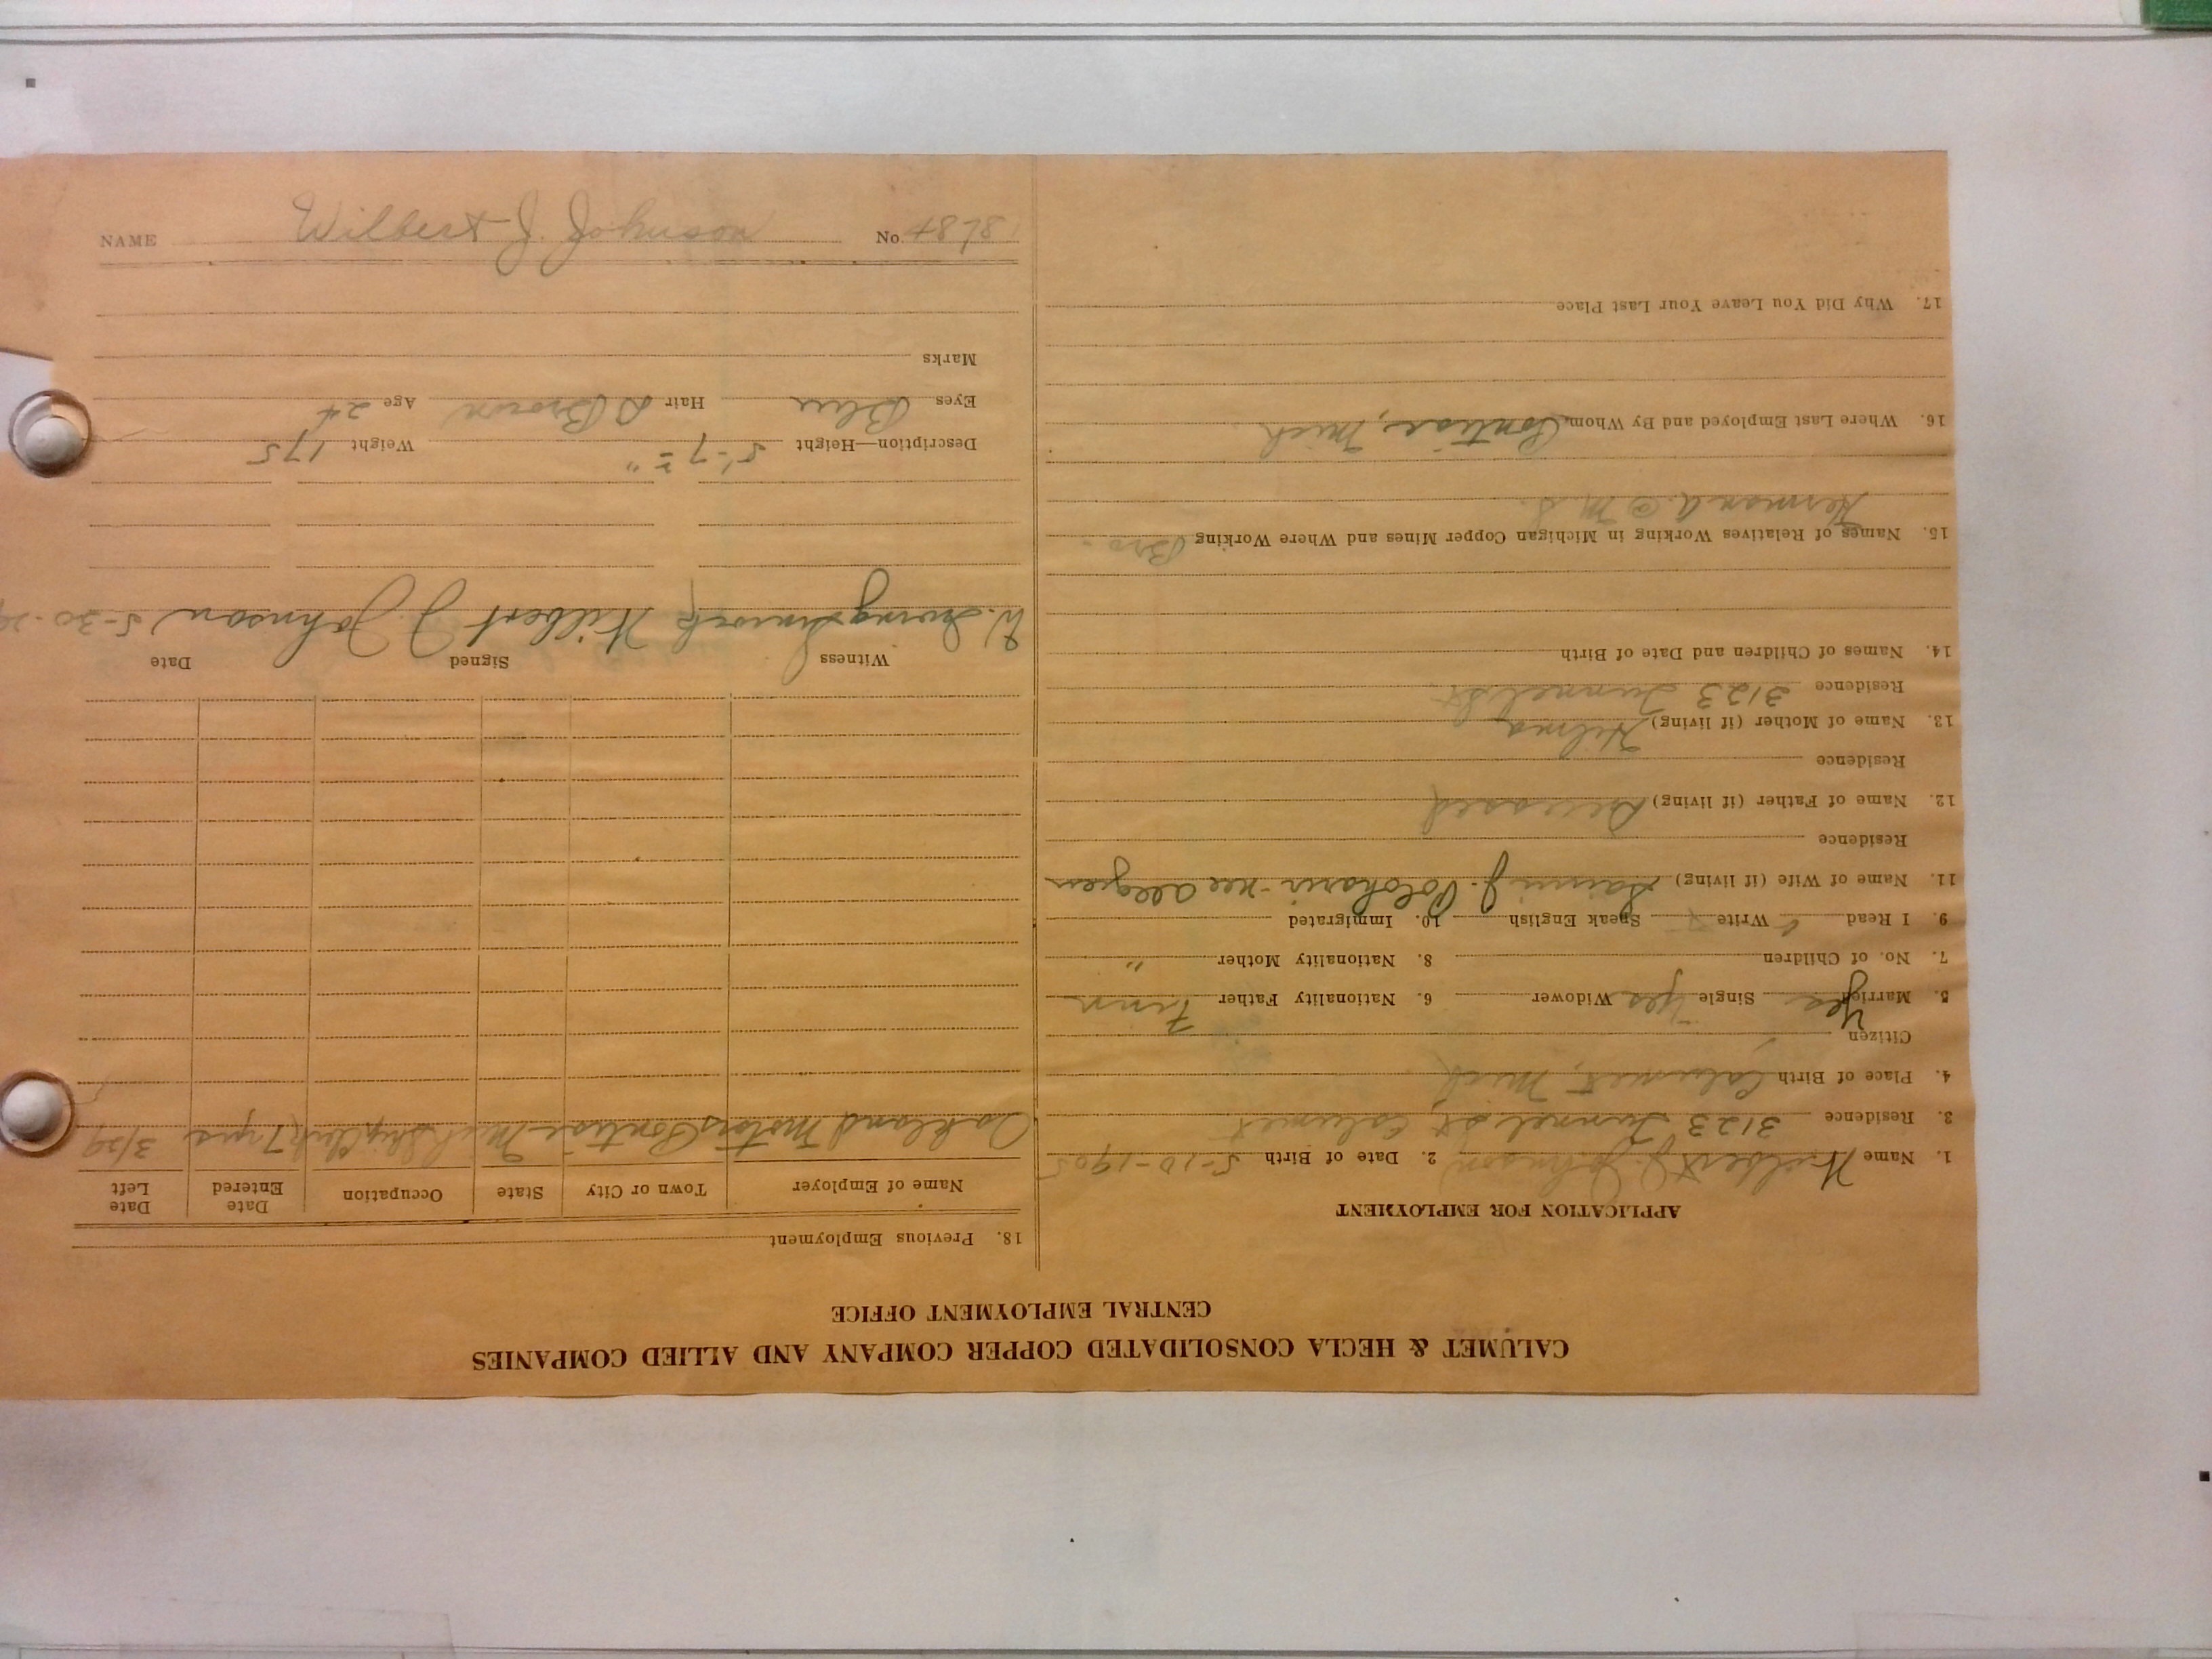 CALUMET & HECLA CONSOLIDATED COPPER COMPANY AND ALLIED COMPANIES
CENTRAL EMPLOYMENT OFFICE
APPLICATION FOR EMPLOYMENT
1. Name Wilbert J. Johnson 2. Date of Birth 5-10-1905
3. Residence 3123 Tunnel St Calumet
4. Place of Birth Calumet, Mich
Citizen Yes
5. Married Single Yes Widower 6. Nationality Father Finn
7. No. of Children 8. Nationality Mother "
9. I Read Write Speak English 10. Immigrated
11. Name of Wife (if living) J. nee
Residence
12. Name of Father (if living) Deceased
Residence
13. Name of Mother (if living) Hilma
Residence 3123 Tunnel St
14. Names of Children and Date of Birth
15. Names of Relatives Working in Michigan Copper Mines and Where Working Bro-
Herman A. @ M.S.
16. Where Last Employed and By Whom Pontiac, Mich
17. Why Did You Leave Your Last Place
18. Previous Employment
Name of Employer Town or City State Occupation Date Entered Date Left
Oakland Motors Pontiac Mich Ship Clerk 7 yrs 3/29
Witness Signed Date
W. Wilbert J. Johnson 5-30-29
Description—Height 5'-7 Weight 175
Eyes Blue Hair D Brown Age 24
Marks
NAME Wilbert J. Johnson No.